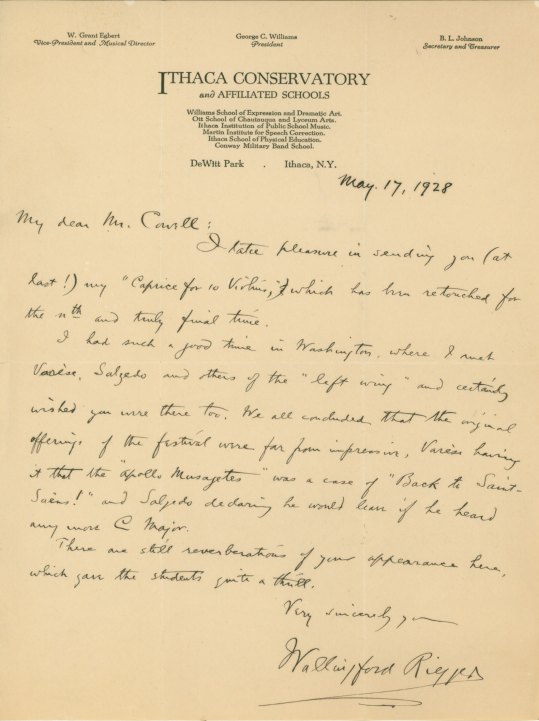 W. Grant Egbert
Vice-President and Musical Director
George C. Williams
President
B. L. Johnson
Secretary and Treasurer
ITHACA CONSERVATORY
and AFFILIATED SCHOOLS
Williams School of Expression and Dramatic Art.
Ott School of Chautauqua and Lyceum Arts.
Ithaca Institution of Public School Music.
Martin Institute for Speech Correction.
Ithaca School of Physical Education.
Conway Military Band School.
DeWitt Park . Ithaca, N.Y.
May. 17, 1928
My dear Mr. Cowell:
I take pleasure in sending you (at
last!) my "Caprice for 10 Violins," which has been retouched for
the nth and truly final time.
I had such a good time in Washington, where I met
Varèse, Salzedo and others of the "left wing" and certainly
wished you were there too. We all concluded that the original
offerings of the festival were far from impressive, Varèse having
it that the "Apollo Musagetes" was a case of "Back to Saint-
Saëns!" and Salzedo declaring he would leave if he heard
any more C Major.
There are still reverberations of your appearance here,
which gave the students quite a thrill.
Very sincerely yours
Wallingford Riegger